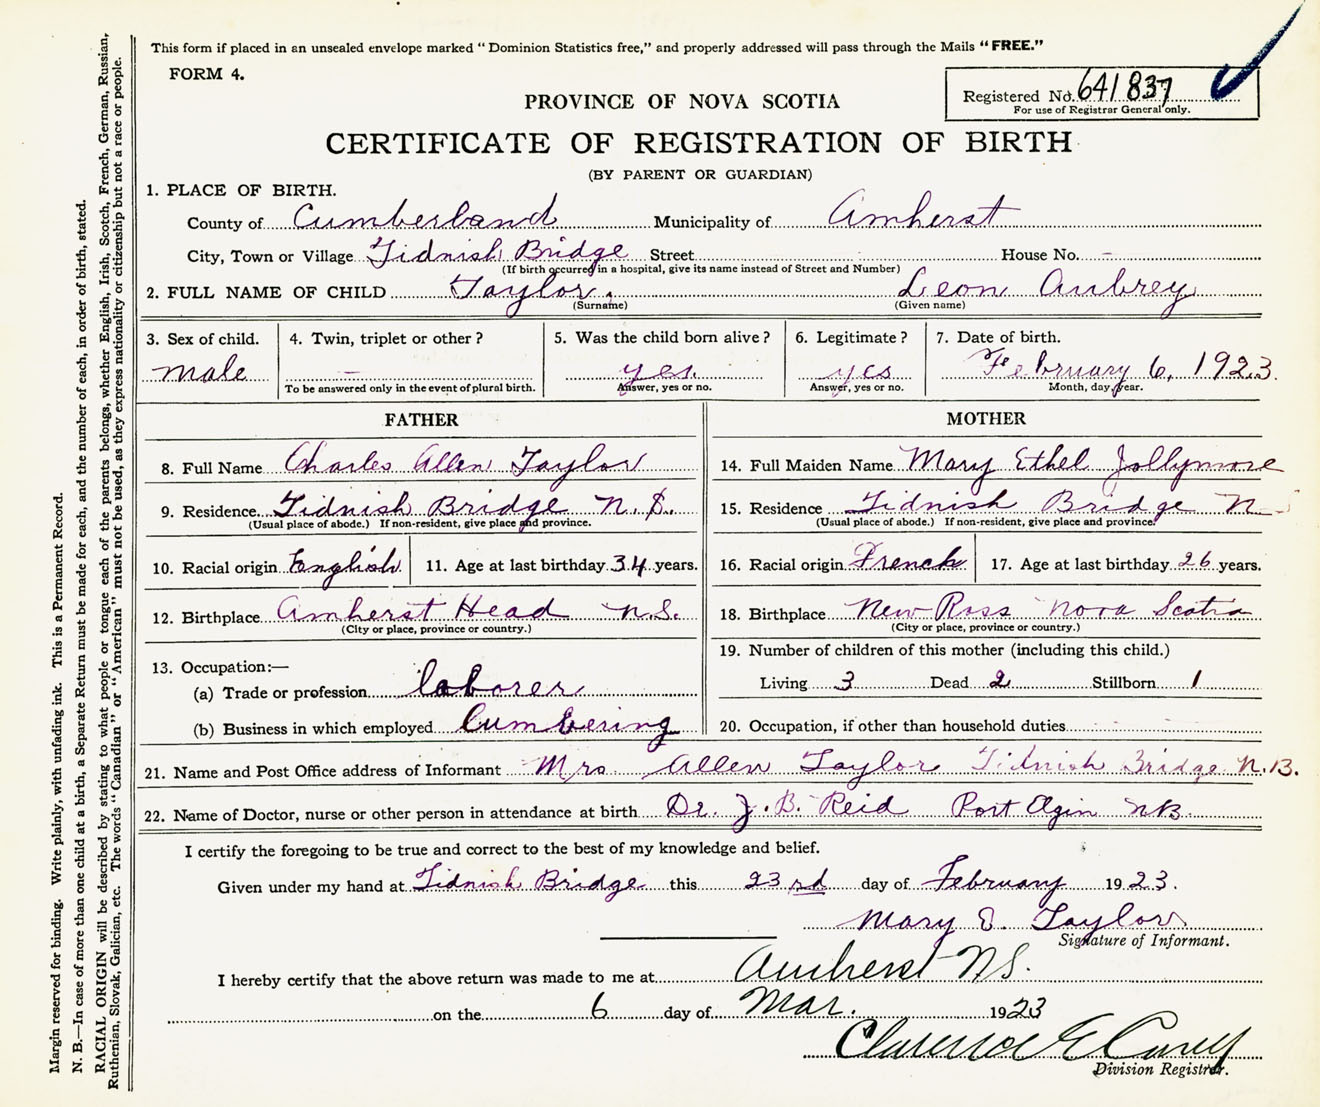 This form if placed in an unsealed envelope marked "Dominion Statistics free," and properly addressed will pass through the Mails "FREE."
FORM 4.
Registered No. 641837
For use of Registrar General only.
PROVINCE OF NOVA SCOTIA
CERTIFICATE OF REGISTRATION OF BIRTH
(BY PARENT OR GUARDIAN)
1. PLACE OF BIRTH.
County of Cumberland Municipality of Amherst
City, Town or Village Tidnish Bridge Street House No. -
(If birth occurred in a hospital, give its name instead of Street and Number)
2. FULL NAME OF CHILD Taylor. Leon Aubrey
(Surname) (Given name)
3. Sex of child. 4. Twin, triplet or other? 5. Was the child born alive? 6. Legitimate? 7. Date of birth.
male - yes. yes February 6, 1923.
To be answered only in the event of plural birth. Answer, yes or no. Answer, yes or no. Month, day, year.
FATHER MOTHER
8. Full Name Charles Allen Taylor 14. Full Maiden Name Mary Ethel Jollymore
9. Residence Tidnish Bridge N.S. 15. Residence Tidnish Bridge N
(Usual place of abode.) If non-resident, give place and province. (Usual place of abode.) If non-resident, give place and province.
10. Racial origin English 11. Age at last birthday 34 years. 16. Racial origin French 17. Age at last birthday 26 years.
12. Birthplace Amherst Head N.S. 18. Birthplace New Ross Nova Scotia
(City or place, province or country.) (City or place, province or country.)
13. Occupation:— 19. Number of children of this mother (including this child.)
(a) Trade or profession laborer Living 3 Dead 2 Stillborn 1
(b) Business in which employed Lumbering 20. Occupation, if other than household duties
21. Name and Post Office address of Informant Mrs Allen Taylor Tidnish Bridge N.B.
22. Name of Doctor, nurse or other person in attendance at birth Dr. J. B. Reid Port Elgin NB
I certify the foregoing to be true and correct to the best of my knowledge and belief.
Given under my hand at Tidnish Bridge this 23rd day of February 1923.
Mary E. Taylor
Signature of Informant.
I hereby certify that the above return was made to me at Amherst N.S.
on the 6 day of Mar. 1923
Clarence E Carey
Division Registrar.
Margin reserved for binding. Write plainly, with unfading ink. This is a Permanent Record.
N. B.—In case of more than one child at a birth, a Separate Return must be made for each, and the number of each, in order of birth, stated.
RACIAL ORIGIN will be described by stating to what people or tongue each of the parents belongs, whether English, Irish, Scotch, French, German, Russian,
Ruthenian, Slovak, Galician, etc. The words "Canadian" or "American" must not be used, as they express nationality or citizenship but not a race or people.